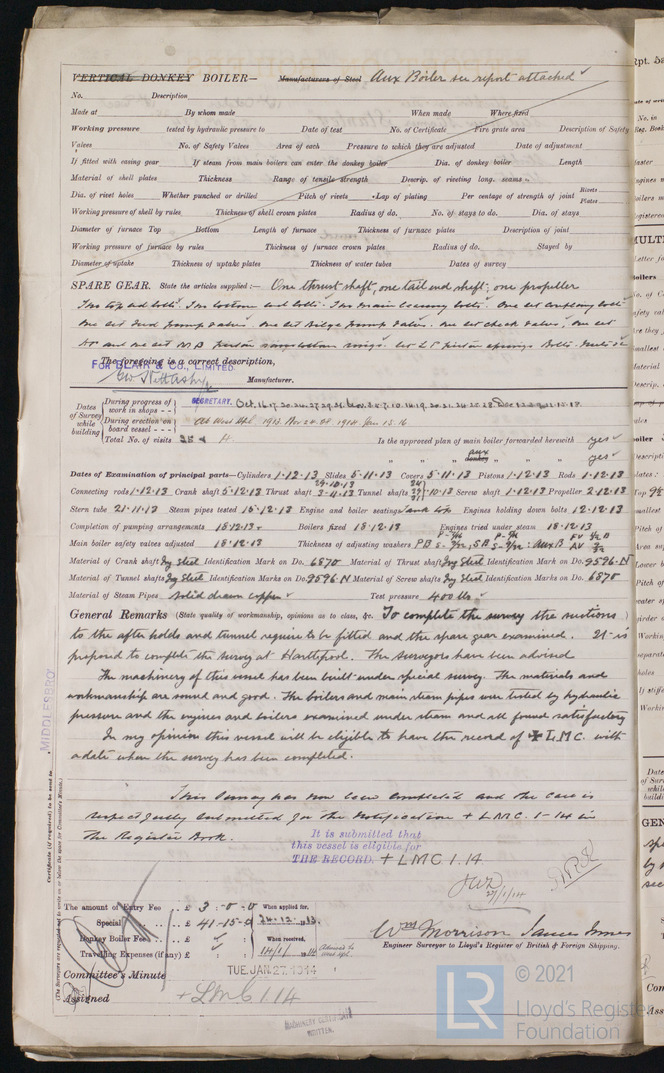 VERTICAL DONKEY BOILER— Manufacturers of Steel Aux Boiler see report attached
No. Description
Made at By whom made When made Where fixed
Working pressure tested by hydraulic pressure to Date of test No. of Certificate Fire grate area Description of Safety
Valves No. of Safety Valves Area of each Pressure to which they are adjusted Date of adjustment
If fitted with easing gear If steam from main boilers can enter the donkey boiler Dia. of donkey boiler Length
Material of shell plates Thickness Range of tensile strength Descrip. of riveting long. seams
Dia. of rivet holes Whether punched or drilled Pitch of rivets Lap of plating Per centage of strength of joint Rivets Plates
Working pressure of shell by rules Thickness of shell crown plates Radius of do. No. of stays to do. Dia. of stays
Diameter of furnace Top Bottom Length of furnace Thickness of furnace plates Description of joint
Working pressure of furnace by rules Thickness of furnace crown plates Radius of do. Stayed by
Diameter of uptake Thickness of uptake plates Thickness of water tubes Dates of survey
SPARE GEAR. State the articles supplied:— One thrust shaft, one tail end shaft, one propeller
Two top end bolts. Two bottom end bolts. Two main bearing bolts. One set coupling bolts
One set feed pump valves one set bilge pump valves. one set check valves, one set
The foregoing is a correct description,
FOR BLAIR & CO., LIMITED.
Manufacturer.
SECRETARY.
Dates of Survey while building
During progress of work in shops - - Oct. 16.17.20.24.27.29.31 Nov. 3.5.7.10.14.19.20.21.24.25.28 Dec
During erection on board vessel - - - 1913. Nov. 24. 1914. Jan. 15. 16
Total No. of visits
Is the approved plan of main boiler forwarded herewith yes
" " " aux donkey " " " yes
Dates of Examination of principal parts—Cylinders 1.12.13 Slides 5.11.13 Covers 5.11.13 Pistons 1.12.13 Rods 1.12.13
Connecting rods 1.12.13 Crank shaft 5.12.13 Thrust shaft 29.10.13 3.11.13 Tunnel shafts 10.13 Screw shaft 1.12.13 Propeller 2.12.13
Stern tube 21.11.13 Steam pipes tested 15.12.13 Engine and boiler seatings Engines holding down bolts 12.12.13
Completion of pumping arrangements 18.12.13 Boilers fixed 18.12.13 Engines tried under steam 18.12.13
Main boiler safety valves adjusted 18.12.13 Thickness of adjusting washers
Material of Crank shaft Ing Steel Identification Mark on Do. 6870 Material of Thrust shaft Ing Steel Identification Mark on Do. 9596.N
Material of Tunnel shafts Ing Steel Identification Marks on Do. 9596.N Material of Screw shafts Ing Steel Identification Marks on Do. 6870
Material of Steam Pipes solid drawn copper Test pressure 400 lbs
General Remarks (State quality of workmanship, opinions as to class, &c. To complete the survey the suctions
to the after holds and tunnel require to be fitted and the spare gear examined. It is
proposed to complete the survey at Hartlepool. The surveyors have been advised
The machinery of this vessel has been built under special survey. The materials and
workmanship are sound and good. The boilers and main steam pipes were tested by hydraulic
pressure and the engines and boilers examined under steam and all found satisfactory
In my opinion this vessel will be eligible to have the record of + L.M.C. with
a date when the survey has been completed.
This survey has now been completed and the case is
respectfully submitted for the notification + LMC. 1-14 in
the Register Book.
It is submitted that
this vessel is eligible for
THE RECORD. + LMC 1.14
27/1/14
MIDDLESBRO'
Certificate (if required) to be sent to
(The Surveyors are requested not to write on or below the space for Committee's Minute.)
The amount of Entry Fee .. £ 3 . 0 . 0 When applied for,
Special .. £ 41 . 15 . 0 24.12.1913.
Donkey Boiler Fee .. £ When received,
Travelling Expenses (if any) £
Wm Morrison James Innes
Engineer Surveyor to Lloyd's Register of British & Foreign Shipping.
Committee's Minute TUE. JAN. 27. 1914
Assigned + LMC 1.14
MACHINERY CERTIFICATE
WRITTEN.
LR
© 2021
Lloyd's Register
Foundation